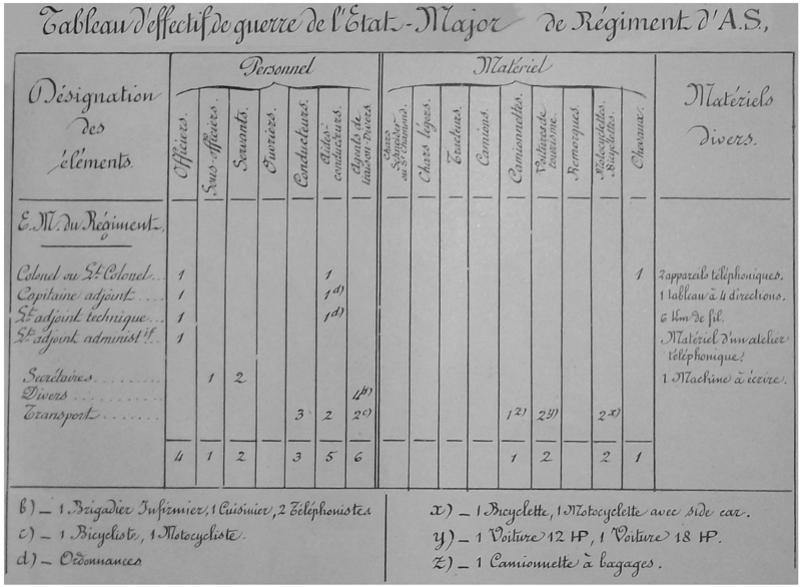 Tableau d'effectif de guerre de l'Etat-Major de Régiment d'A.S.,
Désignation des éléments.
Personnel
Matériel
Matériels divers.
Officiers.
Sous-officiers.
Servants.
Ouvriers.
Conducteurs.
Aides-conducteurs.
Agents de liaison-Divers
Chars Schneider ou St Chamond.
Chars légers.
Tracteurs.
Camions.
Camionnettes.
Voitures de tourisme.
Remorques.
Motocyclettes. Bicyclettes.
Chevaux.
E.M. du Régiment.
Colonel ou Lt Colonel... 1 1 1 2 appareils téléphoniques.
Capitaine adjoint..... 1 1 d) 1 tableau à 4 directions.
Lt adjoint technique... 1 1 d) 6 Km de fil.
Lt adjoint administif.. 1 Matériel d'un atelier
téléphonique.
Secrétaires......... 1 2 1 Machine à écrire.
Divers............ 4 b)
Transport........ 3 2 2 c) 1 z) 2 y) 2 x)
4 1 2 3 5 6 1 2 2 1
b) — 1 Brigadier Infirmier, 1 Cuisinier, 2 Téléphonistes
c) — 1 Bicycliste, 1 Motocycliste.
d) — Ordonnances
x) — 1 Bicyclette, 1 Motocyclette avec side car.
y) — 1 Voiture 12 HP, 1 Voiture 18 HP.
z) — 1 Camionnette à bagages.